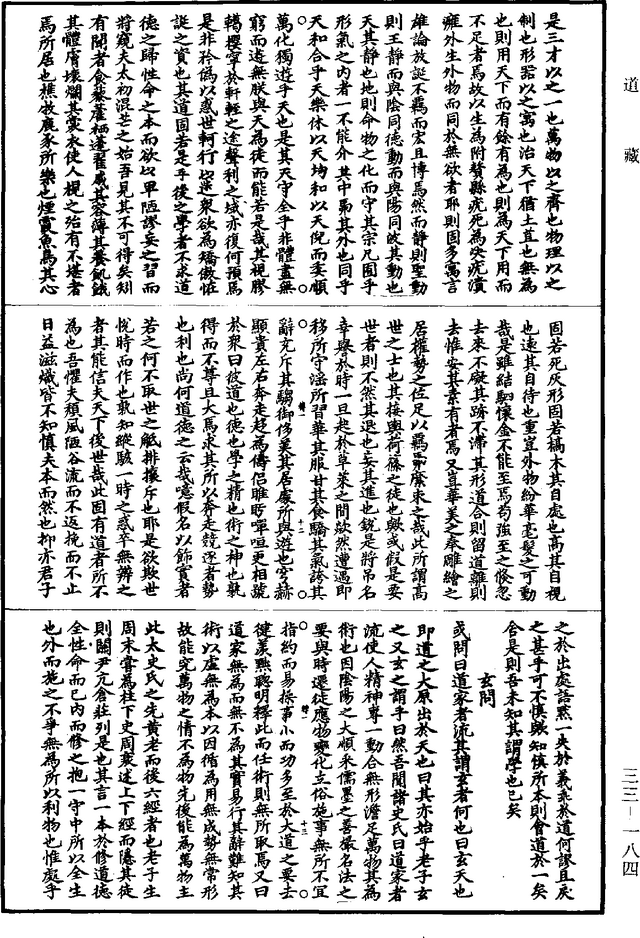 道藏
是三才以之一也萬物以之齊也物理以之
制也形器以之寓也治天下猶土苴也無為
也則用天下而有餘有為也則為天下用而
不足者焉故以生為附贅縣疣死為決疣潰
癰外生外物而同於無欲者耶則固多寓言
雄論放誕不羈而宏且博焉然而靜則聖動
則王靜而與陰同德動而與陽同波其動也
天其靜也地則命物之化而守其宗凡囿乎
形氣之內者一不能介其中焉其外也同乎
天和合乎天樂休以天均和以天倪而委順
萬化獨遊乎天也是其天守全乎非體盡無
窮而遊無朕與天為徒而能若是哉其視膠
轕攖寧於軒輊之途聲利之域亦復何預焉
是非矜僞以惑世軻行以邁衆欲為矯傲怪
誕之資也其道固若是乎後之學者不求道
德之歸性命之本而欲以卑陋謬妄之習而
將窺夫太初混芒之始吾見其不可得矣矧
有聞者食藜藿栖蓬翟戚其容薄其養飢餓
其體膚壞爛其裳衣使人視之殆有不堪者
焉所居也樵牧鹿豕所樂也煙霞魚鳥其心
固若死灰形固若槁木其自處也高其自視
也速其自待也重豈外物紛華毫髮之可動
哉是雖結駟懷金不能至焉苟強至之倏忽
去來不礙其跡不滯其形道合則留道離則
去惟安其素有者焉又豈華美之奉雕繪之
居權勢之位足以羈縻廩求之哉此所謂高
世之士也其接輿荷蓧之徒也歟或假是要
世者則不然其退也妄其進也銳是將吊名
幸譽於時一旦起於草萊之間歘然遭遇即
移所守溢所習華其服甘其食驕其氣誇其
辭文斥其騶御侈美其居處所與遊也穹赫
顯貴左右奔走趍為儔侶睢盱嘽咺更相號
於衆曰彼道也德也學之精也術之神也孰
得而不尊且大焉求其所以奔走競逐者勢
也利也尚何道德之云哉噫假名以飾實者
若之何不取世之觝排攘斥也耶是欲欺世
悅時而作也孰知縱駭一時之惑卒無辨之
者其能信夫天下後世哉此固有道者所不
為也吾懼夫頹風陋俗流而不返挽而不止
日益滋熾皆不知慎夫本而然也抑亦君子
之於出處語黙一失於義乖於道何謬且戾
之甚乎可不慎歟知慎所本則會道於一矣
舍是則吾未知其謂學也已矣
玄問
或問曰道家者流其謂玄者何也曰玄天也
即道之大原出於天也曰其亦始乎老子玄
之又玄之謂乎曰然吾聞諸史氏曰道家者
流使人精神專一動合無形澹足萬物其為
術也因陰陽之大順采儒墨之善撮名法之
要與時遷徙應物變化立俗施事無所不宜
指約而易操事小而功多至於大道之要去
健羨黜聰明釋此而任術則無所取焉又曰
道家無為而無不為其實易行其辭難知其
術以虛無為本以因循為用無成勢無常形
故能究萬物之情不為物先後能為萬物主
此太史氏之先黃老而後六經者也老子生
周末嘗為柱下史周衰述上下經而隱其徒
則關尹亢倉莊列是也其言一本於修道德
全性命而已內而修之抱一守中所以全生
也外而施之不爭無為所以利物也惟處乎
三三—一八四